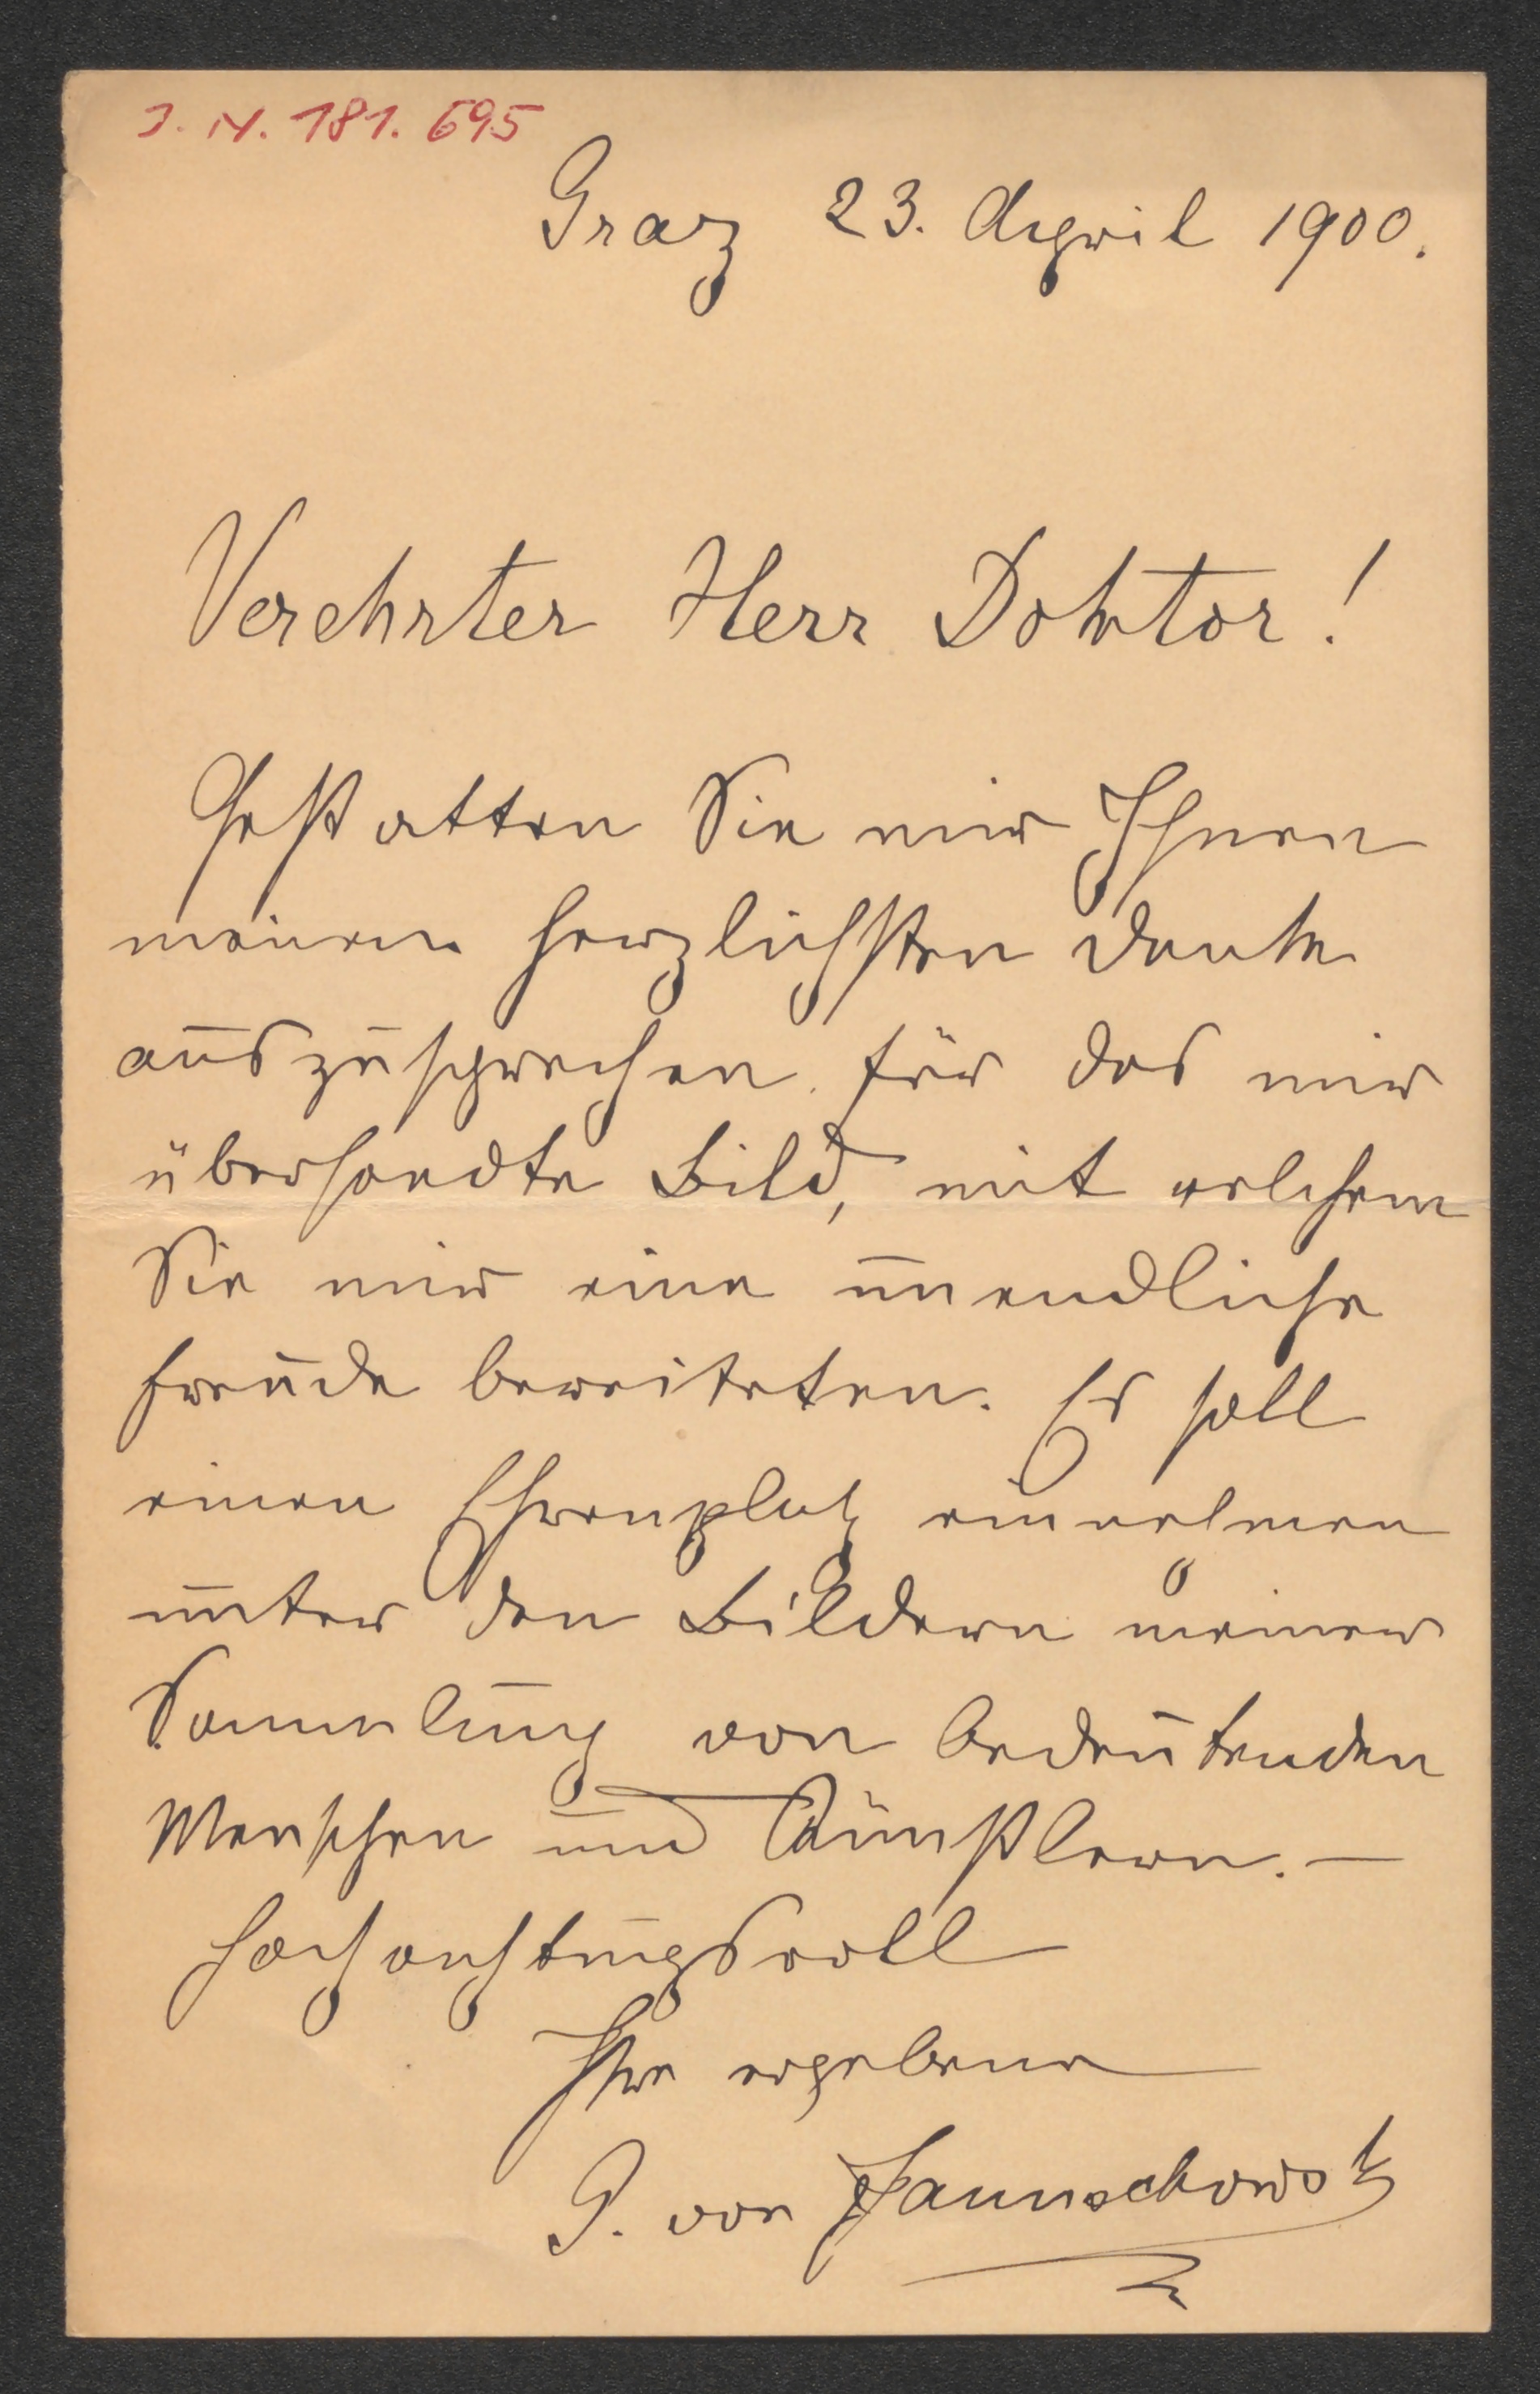 J. N. 181.695
Graz 23. April 1900.
Verehrter Herr Doktor!
Gestatten Sie mir Ihnen
meinen herzlichsten Dank
auszusprechen für das mir
übersandte Bild, mit welchem
Sie mir eine unendliche
Freude bereiteten. Es soll
einen Ehrenplatz einnehmen
unter den Bildern meiner
Sammlung von bedeutenden
Menschen und Künstlern. —
Hochachtungsvoll
Ihre ergebene
P. von